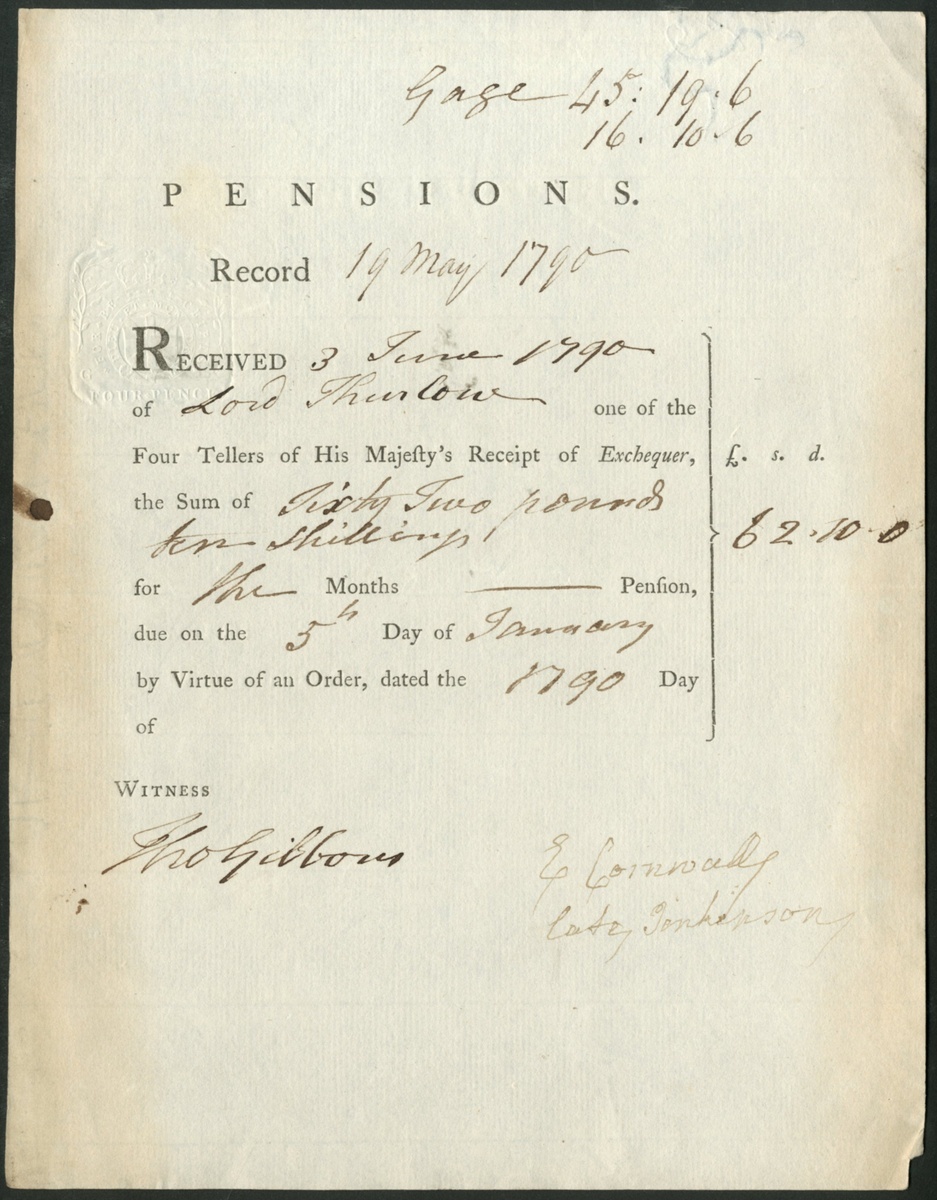 Gage 45: 19. 6
16. 10. 6
PENSIONS.
Record 19 May 1790
RECEIVED 3 June 1790
FOURPENCE
of Lord Thurlow one of the
Four Tellers of His Majeſty's Receipt of Exchequer, £. s. d.
the Sum of Sixty Two pounds
ten Shillings 62.10.0
for the Months Penſion,
due on the 5th Day of January
by Virtue of an Order, dated the 1790 Day
of
WITNESS
Tho Gibbons
E Cornwall
late Jenkinson